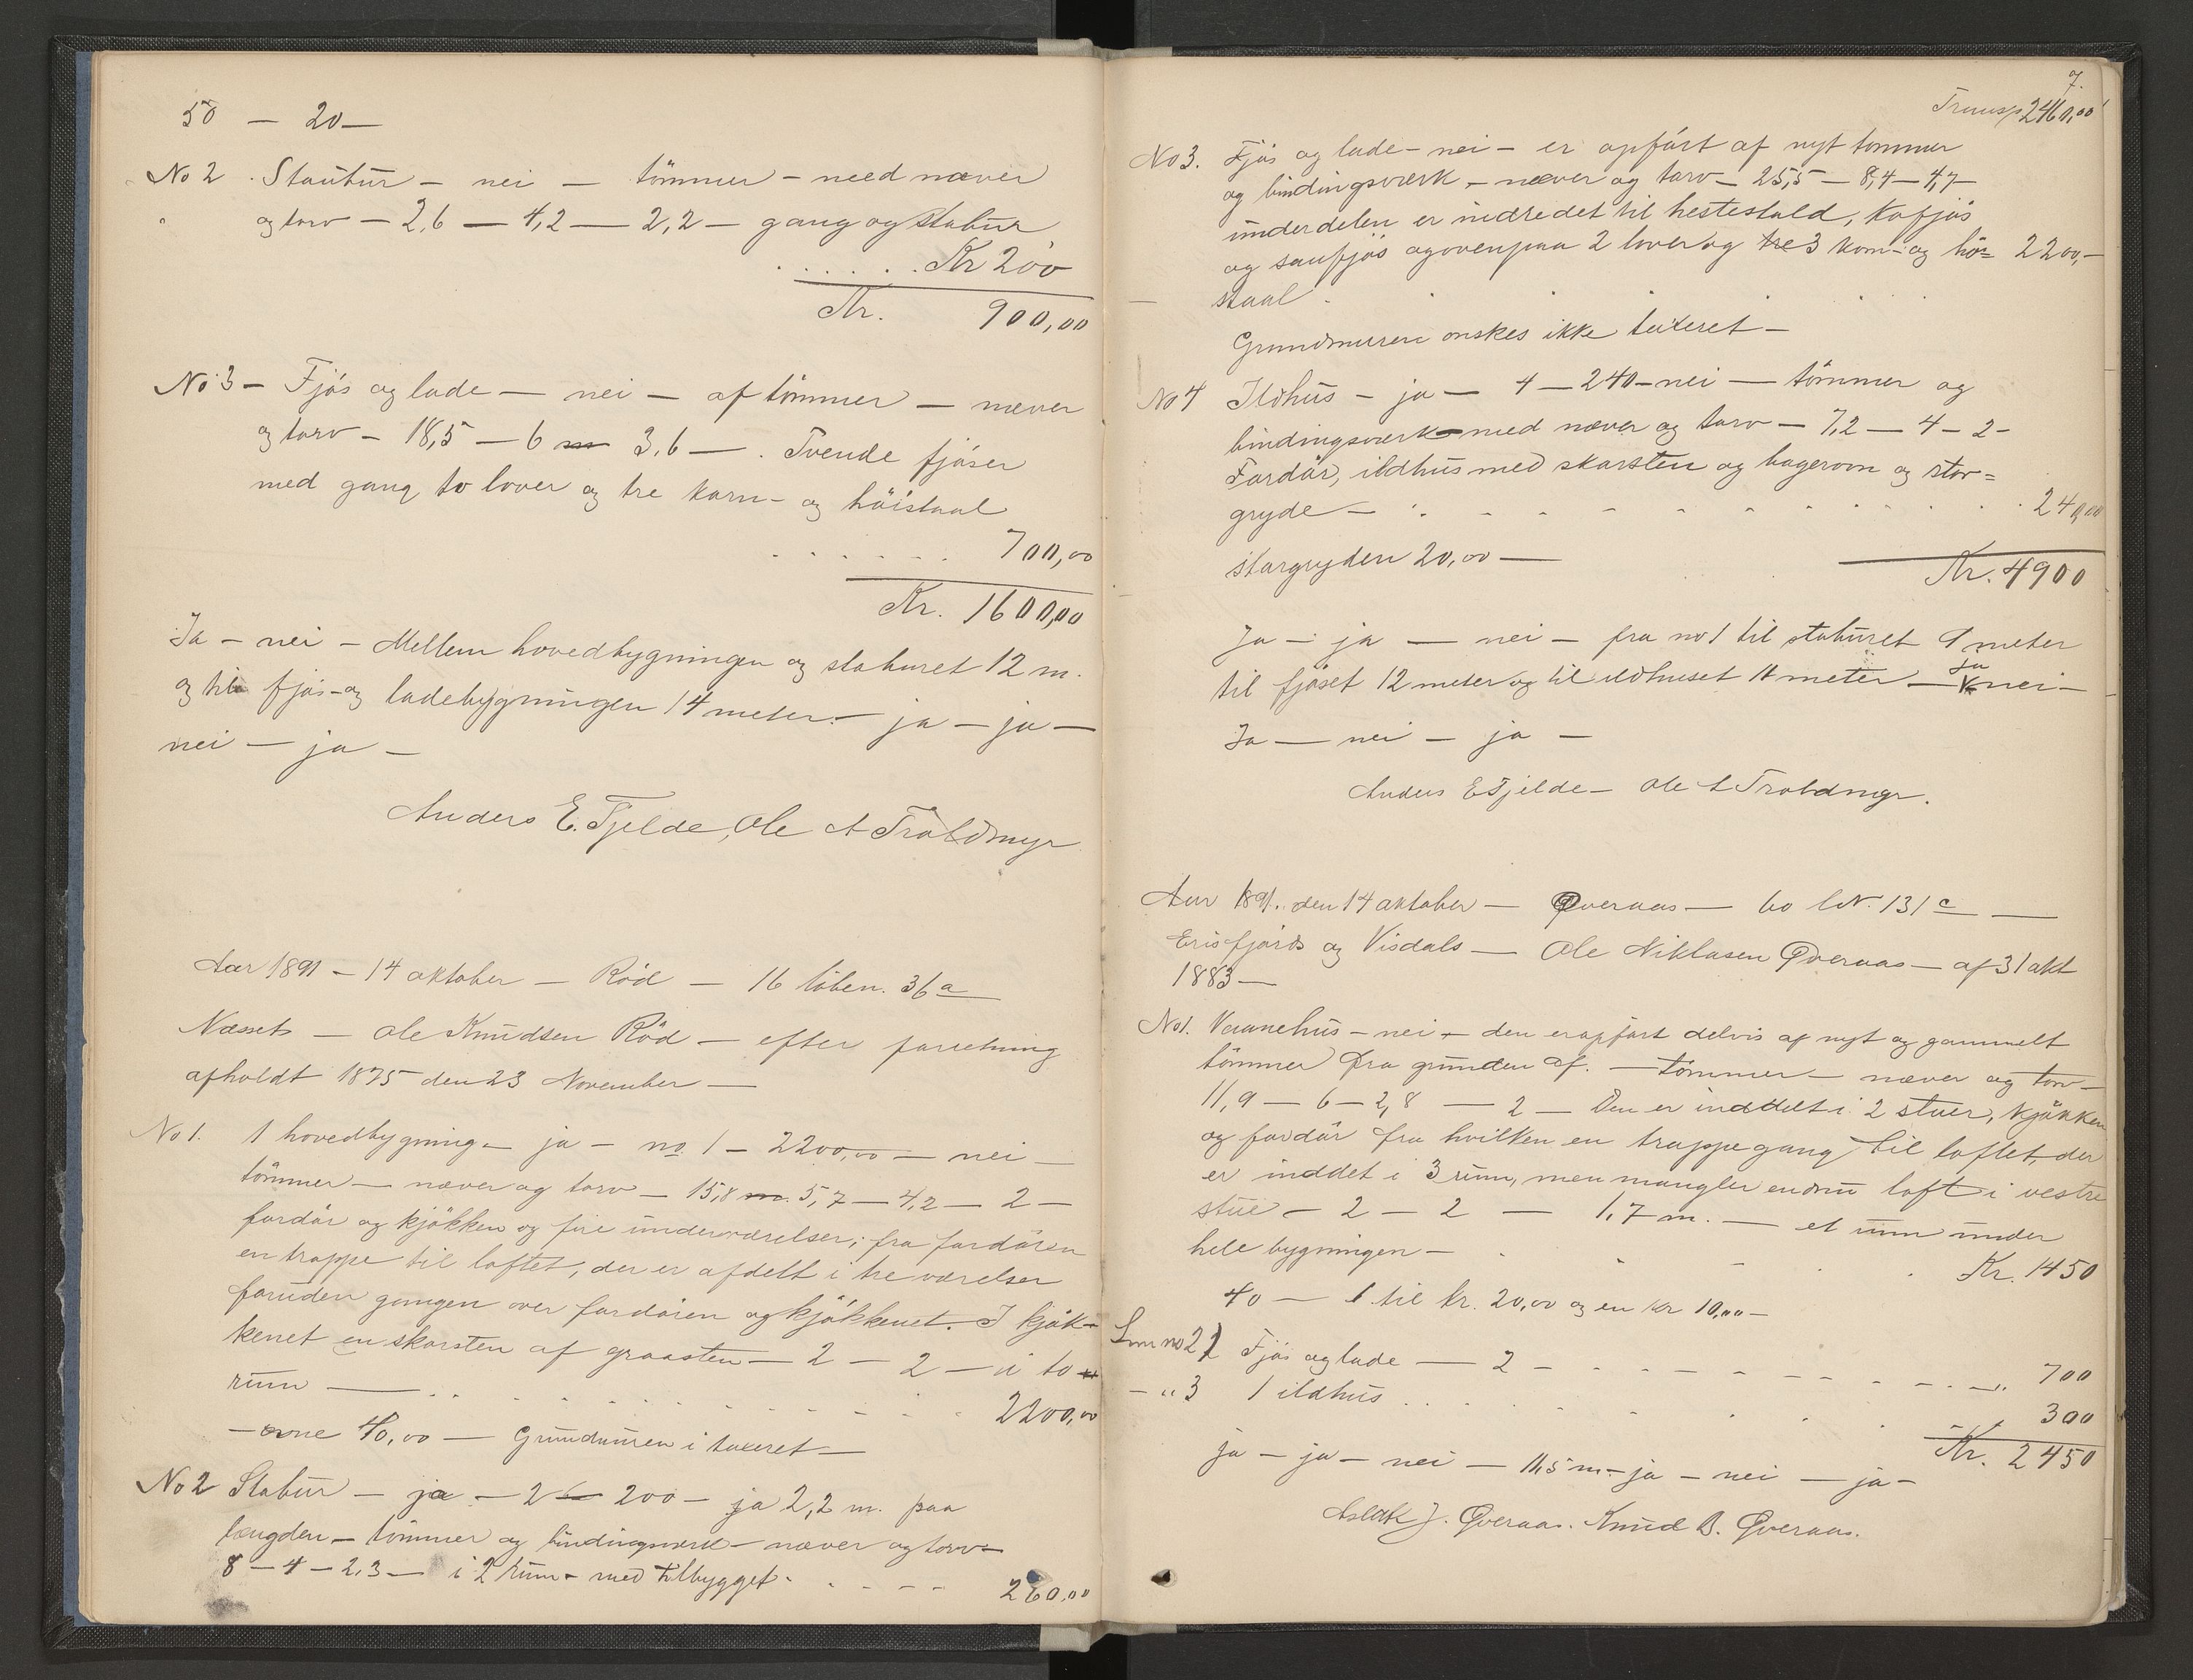 50 — 20 —
No 2 . Staubur — nei — tömmer — med næver
og torv — 2,6 — 4,2 — 2,2 — gang og stabur
. . . . . . Kr 200
Kr. 900,00
No 3 — Fjós og lade — nei — af tömmer — næver
og torv — 18,5 — 6 m 3,6 — . Tvende fjóser
med gang to lover og tre korn- og höistaal
. . . . . . 700,00
Kr. 1600,00
Ja — nei — Mellem hovedbygningen og staburet 12 m.
og til fjós- og ladebygningen 14 meter. — ja — ja —
nei — ja —
Anders E. Fjelde, Ole A Troldmyr
Aar 1891 — 14 oktober — Röd — 16 löben. 36 a
Nesset — Ole Knudsen Röd — efter forretning
afholdt 1875 den 23 November —
No 1. 1 hovedbygning — ja — no 1 — 2200,00 — nei —
tömmer — næver og torv — 15,8 m. 5,7 — 4,2 — 2 —
fordör og kjökken og fire underværelser; fra fordören
en trappe til loftet, der er afdelt i tre værelser
foruden gangen over fordören og kjökkenet. I kjök-
kenet en skorsten af graasten — 2 — 2 — i to
rum — . . . . . . . . . . 2200,00
— ovne 40,00 — Grundmuren i taxeret —
No 2 Stabur — ja — 2 — 200 — ja 2,2 m. paa
længden — tömmer og bindingsverk — næver og torv —
8 — 4 — 2,3 — i 2 rum — med tilbygget . . . . . 260,00
7.
Transp 2460,00
No 3. Fjós og lade — nei — er opfört af nyt tommer
og bindingsværk — næver og torv — 25,5 — 8,4 — 4,7 —
underdelen er indredet til hestestald, kofjós
og saufjós og ovenpaa 2 lover og tre 3 korn- og hö= 2200,—
staal . . . . . .
Grundmuren onskes ikke taxeret —
No 4 Ildhus — ja — 4 — 240 — nei — tömmer og
bindingsverk — med næver og torv — 7,2 — 4 — 2 —
Fordör, ildhus med skorsten og bagerovn og stor=
gryde — . . . . . . . . . . 240,00
storgryden 20,00 —
Kr. 4900
Ja — ja — nei — fra no 1 til staburet 9 meter
til fjöset 12 meter og til ildhuset 11 meter — ja nei —
Ja — nei — ja —
Anders E Fjelde — Ole A Troldmyr.
Aar 1891. den 14 oktober — Qveraas — 60 lN. 131 c —
Erisfjords og Visdals — Ole Niklasen Qveraas — af 31 okt
1883 —
No 1. Vaanehus — nei — den er opfört delvis af nyt og gammelt
tömmer fra grunden af. — tömmer — næver og torv —
11,9 — 6 — 2,8 — 2 — Den er inddelt i 2 stuer, kjökken
og fordör fra hvilken en trappegang til loftet, der
er inddet i 3 rum, men mangler endnu loft i vestre
stue — 2 — 2 — 1,7 m. — et rum under
hele bygningen — . . . . Kr. 1450
40 — 1 til kr. 20,00 og en kr 10,00 —
Som no 2 2) Fjós og lade — 2 — . . . . . . . . 700
— " 3 1 ildhus . . . . . . . 300
Kr. 2450
ja — ja — nei — 11,5 m. — ja — nei — ja —
Aslak J. Qveraas. Knud B. Qveraas.